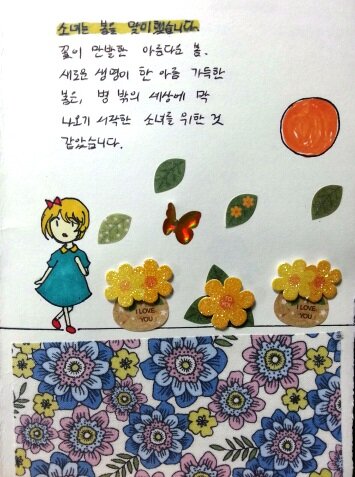 소녀는 봄을 맞이했습니다.
꽃이 만발한 아름다운 봄.
새로운 생명이 한 아름 가득한
봄은, 병 밖의 세상에 막
나오기 시작한 소녀를 위한 것
같았습니다.
I LOVE
YOU
I LOVE
YOU